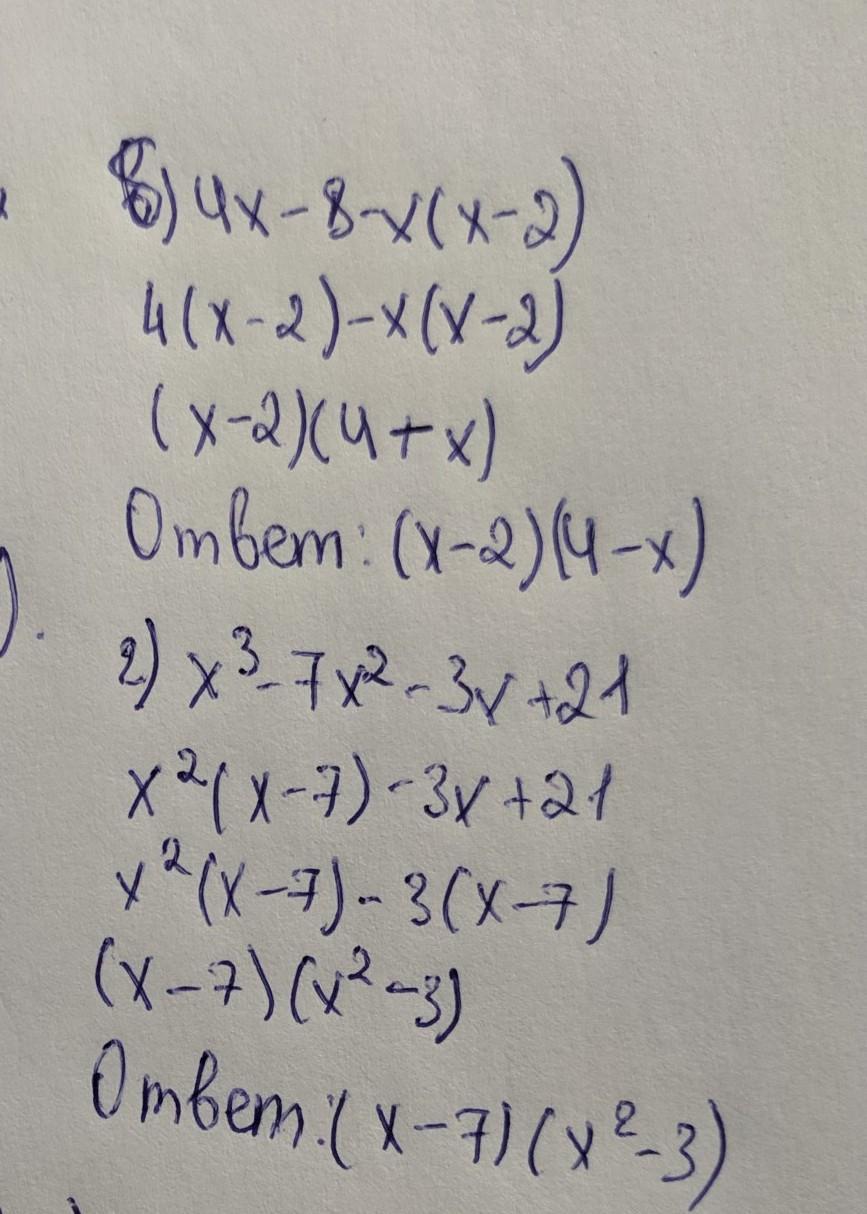 б) 4x-8-x(x-2)
4(x-2)-x(x-2)
(x-2)(4+x)
Ответ: (x-2)(4-x)
г) x³-7x²-3x+21
x²(x-7)-3x+21
x²(x-7)-3(x-7)
(x-7)(x²-3)
Ответ:(x-7)(x²-3)